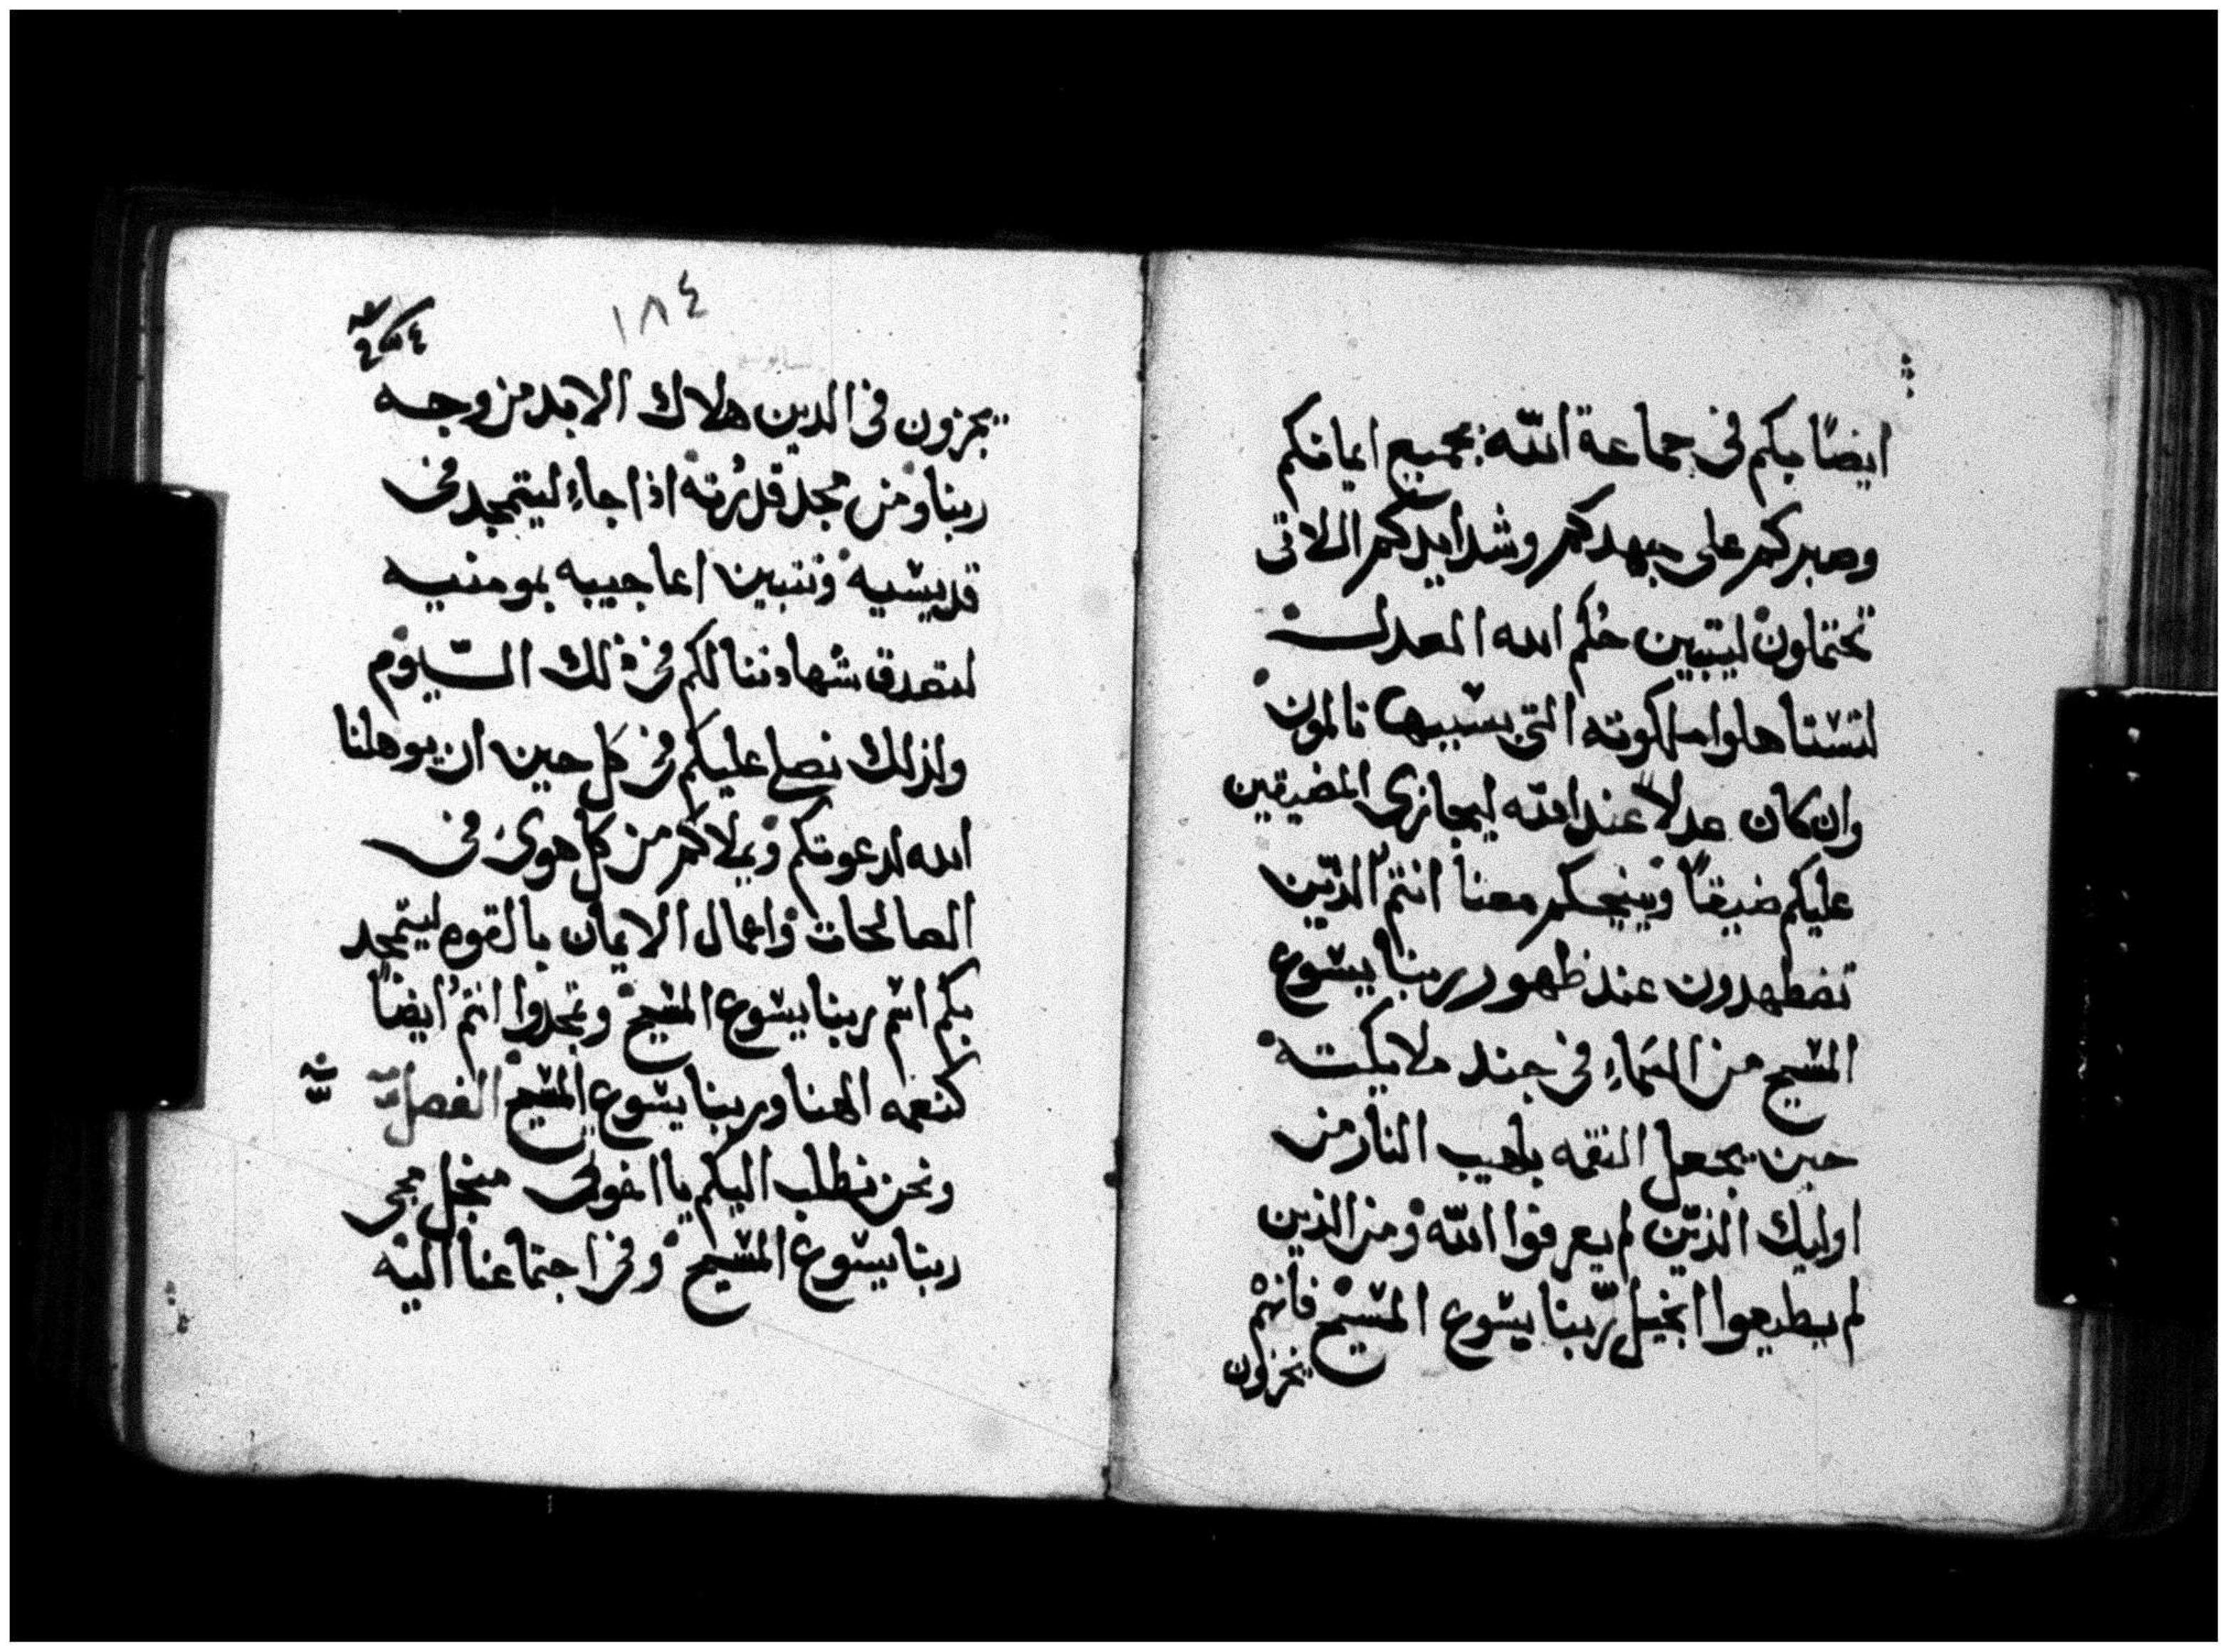 ايضًا بكم في جماعة الله بجميع ايمانكم
وصبركم على جهدكم وشدايدكم اللاتى
تحتملون ليتبين حُكم الله العدل
لتستاهلوا ملكوته التى بسببها تالمون
وان كان عدلاً عند الله ليجازى المضيقين
عليكم ضيقًا وينيحكم معنا انتم الذين
تضطهدون عند ظهور ربنا يسوع
المسيح من السماءِ فى جند ملايكته
حين يجعل النقمه بلهيب النار من
اوليك الذين لم يعرفوا الله ومن الذين
لم يطيعوا انجيل ربنا يسوع المسيح فانهم
يجزون
١٨٤
يجزون فى الدين هلاك الابد من وجه
ربنا ومن مجد قدرته اذا جاءِ ليتمجد فى
قديسيه وتتبين اعاجيبه بمومنيه
لتصدق شهادتنا لكم فى ذلك اليوم
ولذلك نصلى عليكم فى كل حين ان يوهلنا
الله لدعوتكم ويملاكم من كل هوى فى
الصالحات واعمال الايمان بالقوه ليتمجد
بكم اسم ربنا يسوع المسيح وتمجدوا انتم ايضًا
كنعمه الهنا وربنا يسوع المسيح الفصل
ونحن نطلب اليكم يا اخوتى من اجل مجى
ربنا يسوع المسيح وفى اجتماعنا اليه